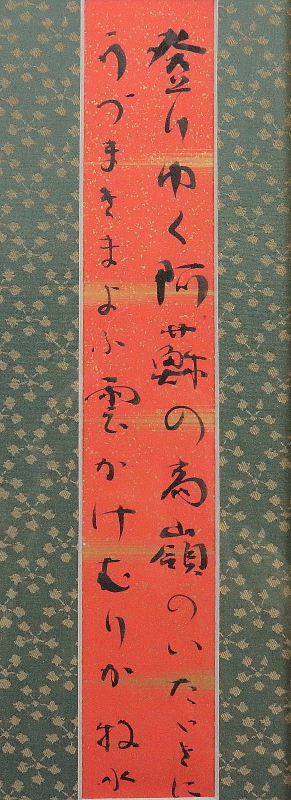 登りゆく阿蘇の高嶺のいたゞきに
うづまきまよふ雲かけむりか 牧水